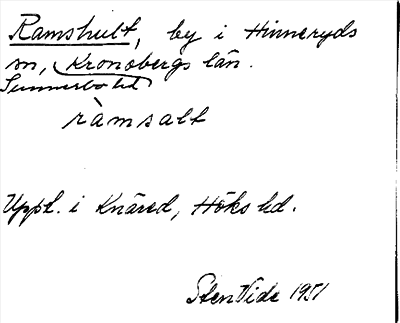 Ramshult, by i Hinneryds
sn, Kronobergs län.
Sunnerbo hd
ràmsalt
Uppt. i Knäred, Höks hd.
Sten Vide 1951